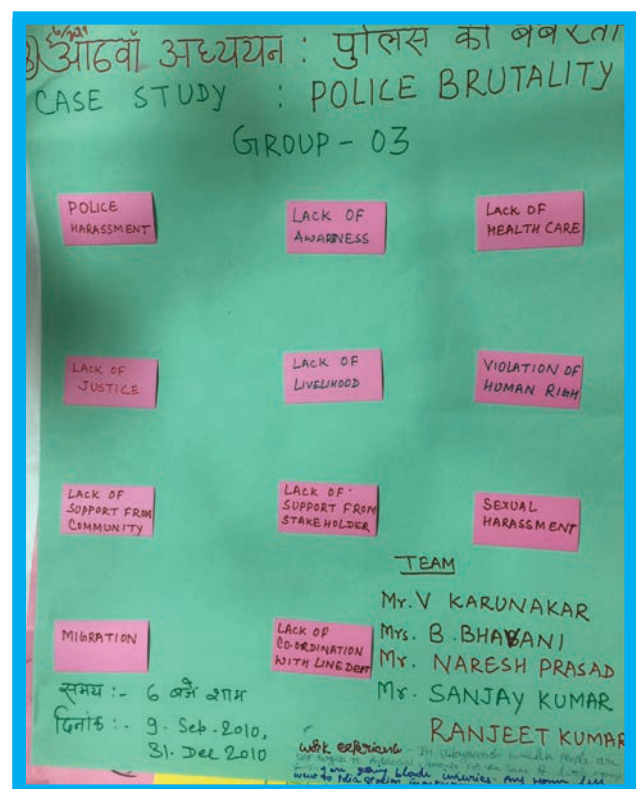 आठवाँ अध्ययन : पुलिस की बर्बरता
CASE STUDY : POLICE BRUTALITY
GROUP - 03
POLICE
HARASSMENT
LACK OF
AWARNESS
LACK OF
HEALTH CARE
LACK OF
JUSTICE
LACK OF
LIVELIHOOD
VIOLATION OF
HUMAN RIGH
LACK OF
SUPPORT FROM
COMMUNITY
LACK OF
SUPPORT FROM
STAKEHOLDER
SEXUAL
HARASSMENT
MIGRATION
LACK OF
CO-ORDINATION
WITH LINE DEPT
TEAM
Mr. V KARUNAKAR
Mrs. B. BHAVANI
Mr. NARESH PRASAD
Mr. SANJAY KUMAR
RANJEET KUMAR
समय :- 6 बजे शाम
दिनांक :- 9. Seb - 2010,
31. Dec 2010
work experience - In